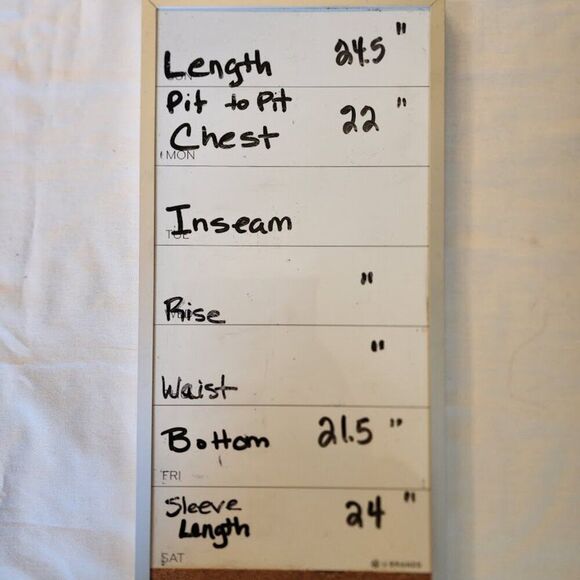 Length 24.5 "
Pit to Pit
Chest 22 "
MON
Inseam
TUE
Rise "
Waist "
Bottom 21.5 "
FRI
Sleeve
Length 24 "
SAT
U BRANDS